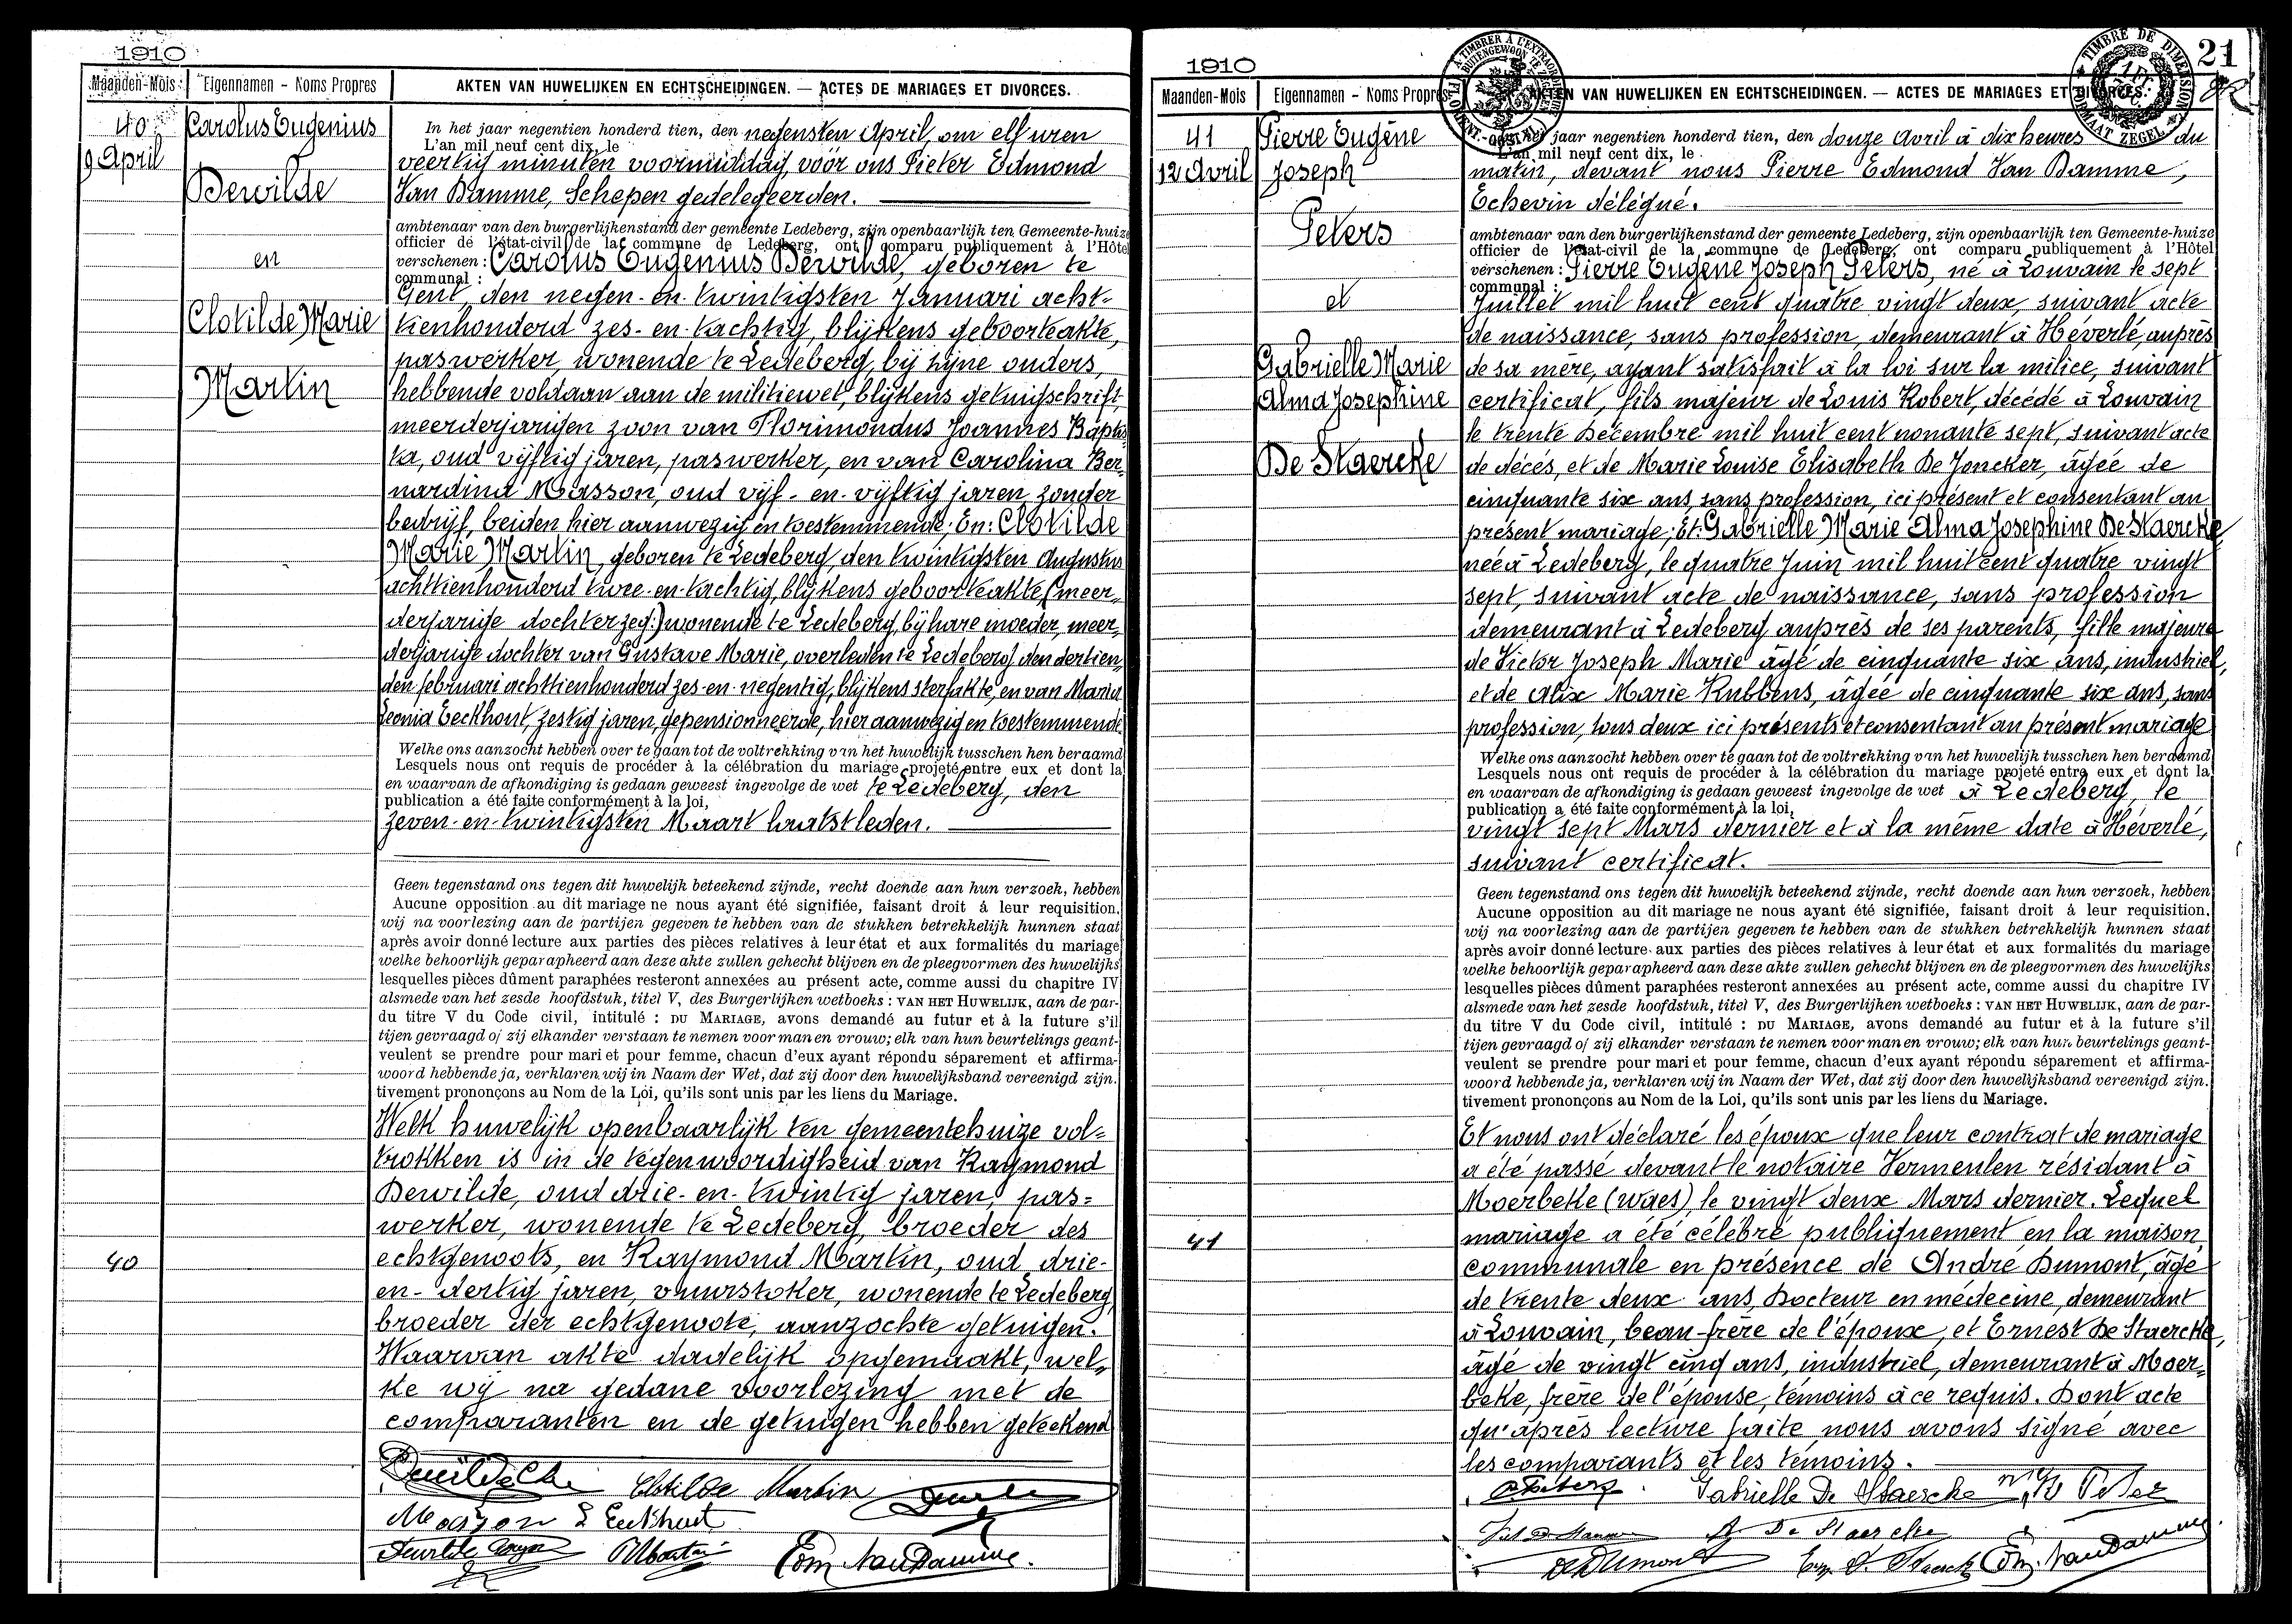 1910
Maanden-Mois
Eigennamen - Noms Propres
AKTEN VAN HUWELIJKEN EN ECHTSCHEIDINGEN. — ACTES DE MARIAGES ET DIVORCES.
40
9 April
Carolus Eugenius
Dewilde
en
Clotilde Marie
Martin
In het jaar negentien honderd tien, den negensten April, om elf uren
L'an mil neuf cent dix, le
veertig minuten voormiddag, vóór ons Pieter Edmond
Van Damme, Schepen gedelegeerden.
ambtenaar van den burgerlijkenstand der gemeente Ledeberg, zijn openbaarlijk ten Gemeente-huize
officier de l'état-civil de la commune de Ledeberg, ont comparu publiquement à l'Hôtel
verschenen : Carolus Eugenius Dewilde, geboren te
communal :
Gent, den negen-en-twintigsten Januari acht=
tienhonderd zes-en-tachtig, blijkens geboorteakte,
paswerker, wonende te Ledeberg, bij zijne ouders,
hebbende voldaan aan de militiewet, blijkens getuigschrift,
meerderjarigen zoon van Florimondus Joannes Baptis
ta, oud vijftig jaren, paswerker, en van Carolina Ber-
nardina Masson, oud vijf-en-vijftig jaren, zonder
bedrijf, beiden hier aanwezig en toestemmende; En: Clotilde
Marie Martin, geboren te Ledeberg, den twintigsten Augustus
achttienhonderd twee-en-tachtig, blijkens geboorteakte, (meer-
derjarige dochter zeg:) wonende te Ledeberg, bij hare moeder, meer-
derjarige dochter van Gustave Marie, overleden te Ledeberg, den dertien-
den februari achttienhonderd zes-en-negentig, blijkens sterfakte, en van Maria
Leonia Eeckhout, zestig jaren, gepensionneerde, hier aanwezig en toestemmende.
Welke ons aanzocht hebben over te gaan tot de voltrekking van het huwelijk tusschen hen beraamd
Lesquels nous ont requis de procéder à la célébration du mariage projeté entre eux et dont la
en waarvan de afkondiging is gedaan geweest ingevolge de wet te Ledeberg, den
publication a été faite conformément à la loi,
zeven-en-twintigsten Maart laatstleden.
Geen tegenstand ons tegen dit huwelijk beteekend zijnde, recht doende aan hun verzoek, hebben
Aucune opposition au dit mariage ne nous ayant été signifiée, faisant droit à leur requisition,
wij na voorlezing aan de partijen gegeven te hebben van de stukken betrekkelijk hunnen staat
après avoir donné lecture aux parties des pièces relatives à leur état et aux formalités du mariage
welke behoorlijk geparapheerd aan deze akte zullen gehecht blijven en de pleegvormen des huwelijks
lesquelles pièces dûment paraphées resteront annexées au présent acte, comme aussi du chapitre IV
alsmede van het zesde hoofdstuk, titel V, des Burgerlijken wetboeks : VAN HET HUWELIJK, aan de par-
du titre V du Code civil, intitulé : DU MARIAGE, avons demandé au futur et à la future s'il
tijen gevraagd of zij elkander verstaan te nemen voor man en vrouw; elk van hun beurtelings geant-
veulent se prendre pour mari et pour femme, chacun d'eux ayant répondu séparement et affirma-
woord hebbende ja, verklaren wij in Naam der Wet, dat zij door den huwelijksband vereenigd zijn.
tivement prononçons au Nom de la Loi, qu'ils sont unis par les liens du Mariage.
Welk huwelijk openbaarlijk ten gemeentehuize vol=
trokken is in de tegenwoordigheid van Raymond
Dewilde, oud drie-en-twintig jaren, pas=
werker, wonende te Ledeberg, broeder des
echtgenoots, en Raymond Martin, oud drie-
40
en-dertig jaren, vuurstoker, wonende te Ledeberg,
broeder der echtgenoote, aanzochte getuigen.
Waarvan akte dadelijk opgemaakt, wel-
ke wij na gedane voorlezing met de
comparanten en de getuigen hebben geteekend
Clotilde Martin
Masson L Eeckhout
Edm. Van Damme.
1910
21
Maanden-Mois
Eigennamen - Noms Propres
AKTEN VAN HUWELIJKEN EN ECHTSCHEIDINGEN. — ACTES DE MARIAGES ET DIVORCES.
TIMBRE DE DIMENSION
FORMAAT ZEGEL
41
12 Avril
Pierre Eugène
Joseph
Peters
et
Gabrielle Marie
Alma Josephine
De Staercke
jaar negentien honderd tien, den douze Avril à dix heures du
L'an mil neuf cent dix, le
matin, devant nous Pierre Edmond Van Damme,
Echevin délégué.
ambtenaar van den burgerlijkenstand der gemeente Ledeberg, zijn openbaarlijk ten Gemeente-huize
officier de l'état-civil de la commune de Ledeberg, ont comparu publiquement à l'Hôtel
verschenen : Pierre Eugène Joseph Peters, né à Louvain le sept
communal :
Juillet mil huit cent quatre vingt deux, suivant acte
de naissance, sans profession, demeurant à Héverlé, auprès
de sa mère, ayant satisfait à la loi sur la milice, suivant
certificat, fils majeur de Louis Robert, décédé à Louvain
le trente Décembre mil huit cent nonante sept, suivant acte
de décès, et de Marie Louise Elisabeth De Joncker, âgée de
cinquante six ans, sans profession, ici présent et consentant au
présent mariage; Et: Gabrielle Marie Alma Josephine De Staercke
née à Ledeberg, le quatre Juin mil huit cent quatre vingt
sept, suivant acte de naissance, sans profession
demeurant à Ledeberg auprès de ses parents, fille majeure
de Victor Joseph Marie âgé de cinquante six ans, industriel,
et de Alix Marie Rubbens, âgée de cinquante six ans, sans
profession, tous deux ici présents et consentant au présent mariage
Welke ons aanzocht hebben over te gaan tot de voltrekking van het huwelijk tusschen hen beraamd
Lesquels nous ont requis de procéder à la célébration du mariage projeté entre eux et dont la
en waarvan de afkondiging is gedaan geweest ingevolge de wet à Ledeberg, le
publication a été faite conformément à la loi,
vingt sept Mars dernier et à la même date à Héverlé,
suivant certificat.
Geen tegenstand ons tegen dit huwelijk beteekend zijnde, recht doende aan hun verzoek, hebben
Aucune opposition au dit mariage ne nous ayant été signifiée, faisant droit à leur requisition,
wij na voorlezing aan de partijen gegeven te hebben van de stukken betrekkelijk hunnen staat
après avoir donné lecture aux parties des pièces relatives à leur état et aux formalités du mariage
welke behoorlijk geparapheerd aan deze akte zullen gehecht blijven en de pleegvormen des huwelijks
lesquelles pièces dûment paraphées resteront annexées au présent acte, comme aussi du chapitre IV
alsmede van het zesde hoofdstuk, titel V, des Burgerlijken wetboeks : VAN HET HUWELIJK, aan de par-
du titre V du Code civil, intitulé : DU MARIAGE, avons demandé au futur et à la future s'il
tijen gevraagd of zij elkander verstaan te nemen voor man en vrouw; elk van hun beurtelings geant-
veulent se prendre pour mari et pour femme, chacun d'eux ayant répondu séparement et affirma-
woord hebbende ja, verklaren wij in Naam der Wet, dat zij door den huwelijksband vereenigd zijn.
tivement prononçons au Nom de la Loi, qu'ils sont unis par les liens du Mariage.
Et nous ont déclaré les époux que leur contrat de mariage
a été passé devant le notaire Vermeulen résidant à
Moerbeke (Waes), le vingt deux Mars dernier. Lequel
mariage a été célébré publiquement en la maison
41
communale en présence de André Dumont, âgé
de trente deux ans, Docteur en médecine, demeurant
à Louvain, beau-frère de l'époux, et Ernest De Staercke,
âgé de vingt cinq ans, industriel, demeurant à Moer-
beke, frère de l'épouse, témoins à ce requis. Dont acte
qu'après lecture faite nous avons signé avec
les comparants et les témoins.
Gabrielle De Staercke
De Staercke
Dumont
Edm. Van Damme